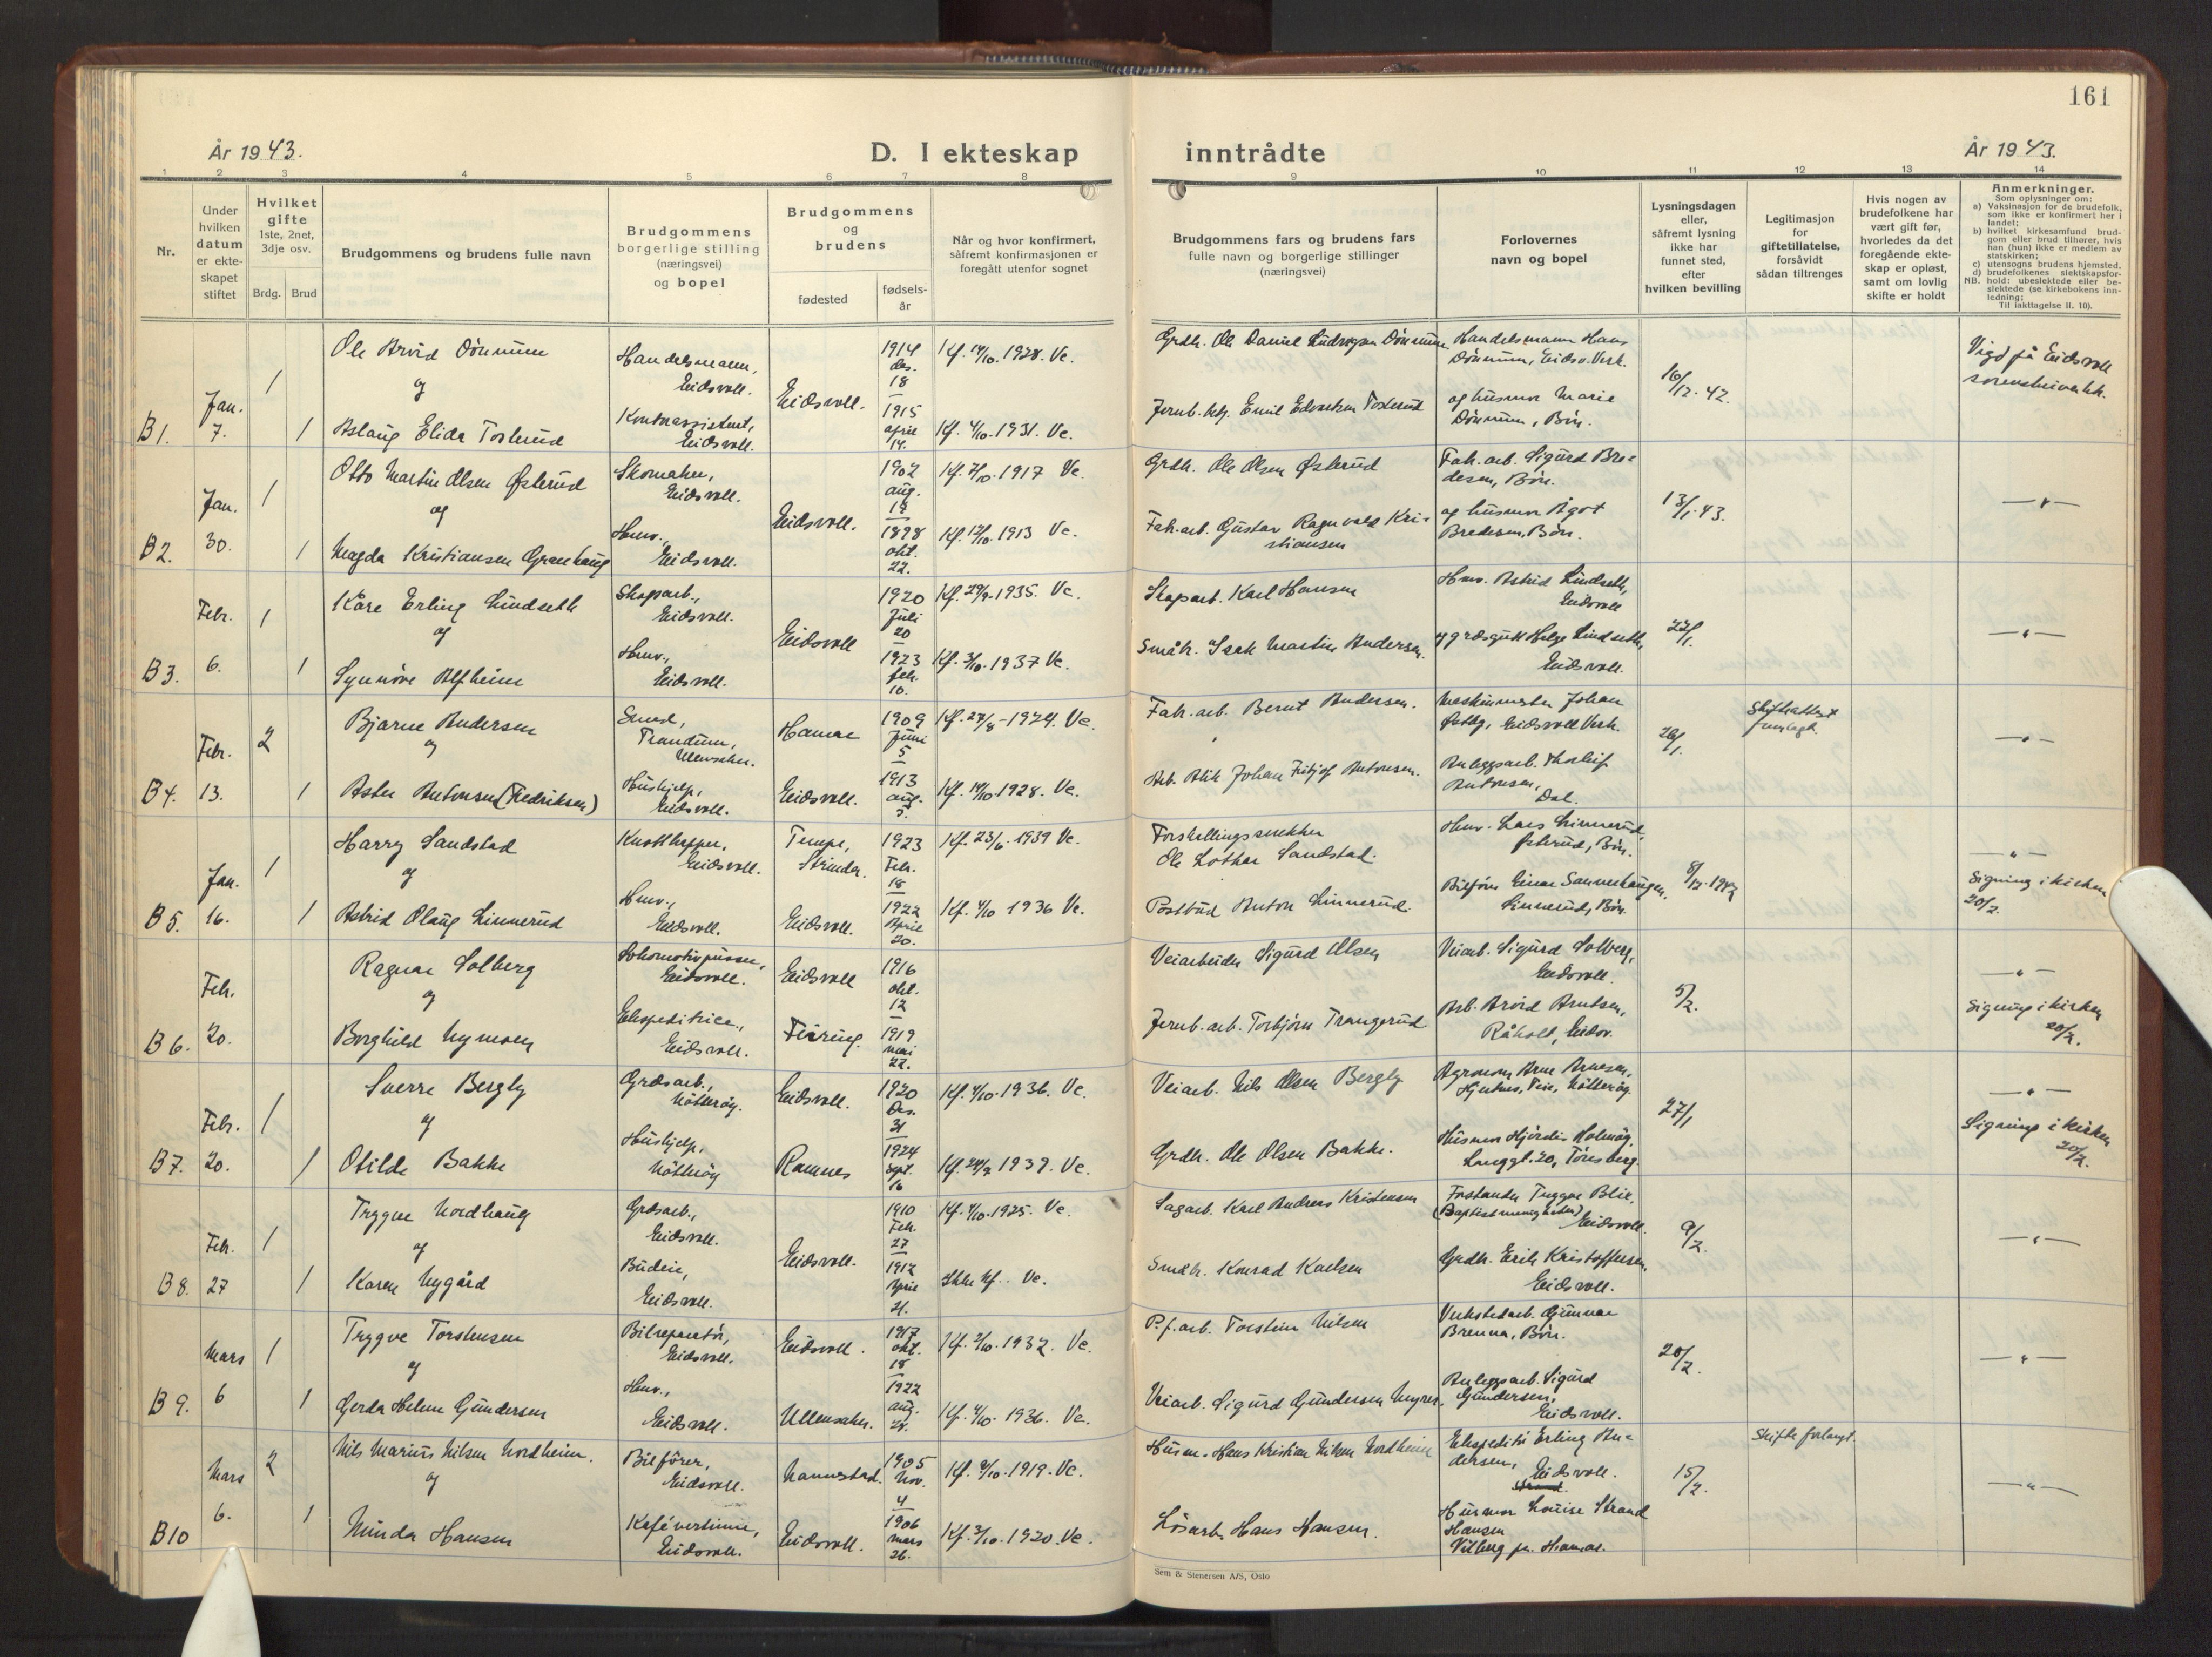 161
År 1943.
D. I ekteskap inntrådte
År 1943.
1 2 3 4 5 6 7 8 9 10 11 12 13 14
Nr.
Under
hvilken
datum
er ekte-
skapet
stiftet
Hvilket
gifte
1ste, 2net,
3dje osv.
Brdg. Brud
Brudgommens og brudens fulle navn
Brudgommens
borgerlige stilling
(næringsvei)
og bopel
Brudgommens
og
brudens
fødested
fødsels-
år
Når og hvor konfirmert,
såfremt konfirmasjonen er
foregått utenfor sognet
Brudgommens fars og brudens fars
fulle navn og borgerlige stillinger
(næringsvei)
Forlovernes
navn og bopel
Lysningsdagen
eller,
såfremt lysning
ikke har
funnet sted,
efter
hvilken bevilling
Legitimasjon
for
giftetillatelse,
forsåvidt
sådan tiltrenges
Hvis nogen av
brudefolkene har
vært gift før,
hvorledes da det
foregående ekte-
skap er opløst,
samt om lovlig
skifte er holdt
Anmerkninger.
Som oplysninger om:
a) Vaksinasjon for de brudefolk,
som ikke er konfirmert her i
landet;
b) hvilket kirkesamfund brud-
gom eller brud tilhører, hvis
han (hun) ikke er medlem av
statskirken;
c) utensogns brudens hjemsted.
d) brudefolkenes slektskapsfor-
hold: ubeslektede eller be-
slektede (se kirkebokens inn-
ledning;
NB. Til iakttagelse II. 10).
B1. Jan. 7. 1 1
Ole Arvid Dønnum
og
Aslaug Elida Tosterud
Handelsmann,
Eidsvoll.
Kontorassistent,
Eidsvoll.
Eidsvoll.
1914 des. 18
1915 april 14.
Kf. 14/10. 1928. Ve.
Kf. 4/10. 1931. Ve.
Grdb. Ole Daniel Ludvigsen Dønnum
Jernb. btj. Emil Edvartsen Tosterud
Handelsmann Hans
Dønnum, Eidsv. Verk.
og husmor Marie
Dønnum, Bøn.
16/12. 42.
Vigd på Eidsvoll
sorenskriverkt.
B2. Jan. 30. 1 1
Otto Martin Olsen Østerud
og
Magda Kristiansen Granhaug
Skomaker,
Eidsvoll.
Husv.,
Eidsvoll.
Eidsvoll.
1902 aug. 19
1898 okt. 22.
Kf. 7/10. 1917 Ve.
Kf. 12/10. 1913 Ve.
Grdb. Ole Olsen Østerud
Fab.arb. Gustav Ragnvald Kri-
stiansen
Fab. arb. Sigurd Bre-
desen, Bøn.
og husmor Ågot
Bredesen, Bøn.
13/1. 43.
—"—
B3. Febr. 6. 1 1
Kåre Erling Lindseth
og
Synnøve Alfheim
Skogsarb.,
Eidsvoll.
Husv.,
Eidsvoll.
Eidsvoll
1920 Juli 20
1923 feb. 10.
Kf. 29/9. 1935. Ve.
Kf. 3/10. 1937 Ve.
Skogsarb. Karl Hansen
Småbr. Isak Martin Andersen.
Husv. Astrid Lindseth,
Eidsvoll
og grdsgutt Helge Lindseth,
Eidsvoll.
22/1.
—"—
B4. Febr. 13. 2 1
Bjarne Andersen
og
Aster Antonsen (Fredriksen)
Smed,
Trandum,
Ullensaker.
Hushjelp,
Eidsvoll.
Hamar
Eidsvoll.
1909 Juni 5
1913 aug. 3.
Kf. 27/8 - 1924. Ve.
Kf. 14/10. 1928. Ve.
Fab. arb. Bernt Andersen.
Arb. Johan Fritjof Antonsen.
Maskinmester Johan
Østby, Eidsvoll Verk.
Anleggsarb. Thorleif
Antonsen,
Dal.
26/1.
Skifteattest
fremlagt.
—"—
B5. Jan. 16. 1 1
Harry Sandstad
og
Astrid Olaug Linnerud
Knotthugger,
Eidsvoll.
Husv.,
Eidsvoll.
Tempe,
Strinda.
Eidsvoll.
1923 Feb. 18
1922 April 20.
Kf. 23/6. 1939 Ve.
Kf. 4/10 1936 Ve.
Forskallingssnekker
Ole Lothar Sandstad.
Postbud Anton Linnerud.
Husv. Lars Linnerud,
Østerud, Bøn.
Bilfører Einar Sannerhaugen,
Linnerud, Bøn.
8/12. 1942
—"—
Signing i kirken
20/2.
B6. Feb. 20.
Ragnar Solberg
og
Borghild Nymoen
Lokomotivpusser,
Eidsvoll.
Ekspeditrice,
Eidsvoll.
Eidsvoll
Feiring.
1916 okt. 12
1919 mai 22.
Veiarbeider Sigurd Olsen
Jernb. arb. Torbjørn Trangerud
Veiarb. Sigurd Solberg,
Eidsvoll.
Arb. Arvid Arntsen,
Råholt, Eidsv.
5/2.
—"—
Signing i kirken
20/2.
B7. Febr. 20. 1 1
Sverre Bergly
og
Otilde Bakke
Grdsarb.,
Nøtterøy.
Hushjelp,
Nøtterøy
Eidsvoll.
Ramnes
1920 Des. 31
1924 sept. 16
Kf. 4/10. 1936. Ve.
Kf. 24/9. 1939. Ve.
Veiarb. Nils Olsen Bergly
Grdb. Ole Olsen Bakke.
Agronom Arne Arnesen,
Hjertnes, Teie, Nøtterøy.
Husmor Hjørdis Holmøy,
Langgt. 20, Tønsberg.
27/1
—"—
Signing i kirken
20/2.
B8. Feb. 27 1 1
Trygve Nordhaug
og
Karen Nygård
Grdsarb.,
Eidsvoll.
Budeie,
Eidsvoll.
Eidsvoll.
1910 Feb. 27
1912 April 21.
Kf. 4/10. 1925. Ve.
Ikke kf. Ve.
Sagarb. Karl Andreas Kristensen
Småbr. Konrad Karlsen
Forstander Trygve Blix.
(Baptistmenigheten)
Eidsvoll.
Grdb. Erik Kristoffersen,
Eidsvoll.
9/2.
—"—
B9. Mars 6 1 1
Trygve Torstensen
og
Gerda Helene Gundersen
Bilreparatør,
Eidsvoll.
Husv.,
Eidsvoll.
Eidsvoll.
Ullensaker.
1917 okt. 18
1922 aug. 28.
Kf. 2/10. 1932. Ve.
Kf. 4/10. 1936. Ve.
P.f.arb. Torstein Nilsen
Veiarb. Sigurd Gundersen Myrer.
Verkstedarb. Gunnar
Brenna, Bøn.
Anleggsarb. Sigurd
Gundersen,
Eidsvoll.
20/2.
—"—
B10 Mars 6. 2 1
Nils Marius Nilsen Nordheim.
og
Minda Hansen
Bilfører,
Eidsvoll.
Kafévertinne,
Eidsvoll.
Nannestad.
Eidsvoll.
1905 Nov. 4
1906 mars 26.
Kf. 4/10. 1919. Ve.
Kf. 3/10. 1920. Ve.
Husm. Hans Kristian Nilsen Nordheim
Løsarb. Hans Hansen.
Ekspeditør Erling An-
dersen, Eidsvoll.
Husmor Louise Strand
Hansen
Vilberg pr. Hamar.
15/2.
Skifte forlangt.
—"—
Sem & Stenersen A/S, Oslo